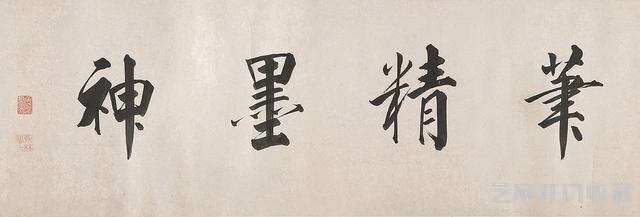 筆精墨神
芝麻开门收藏